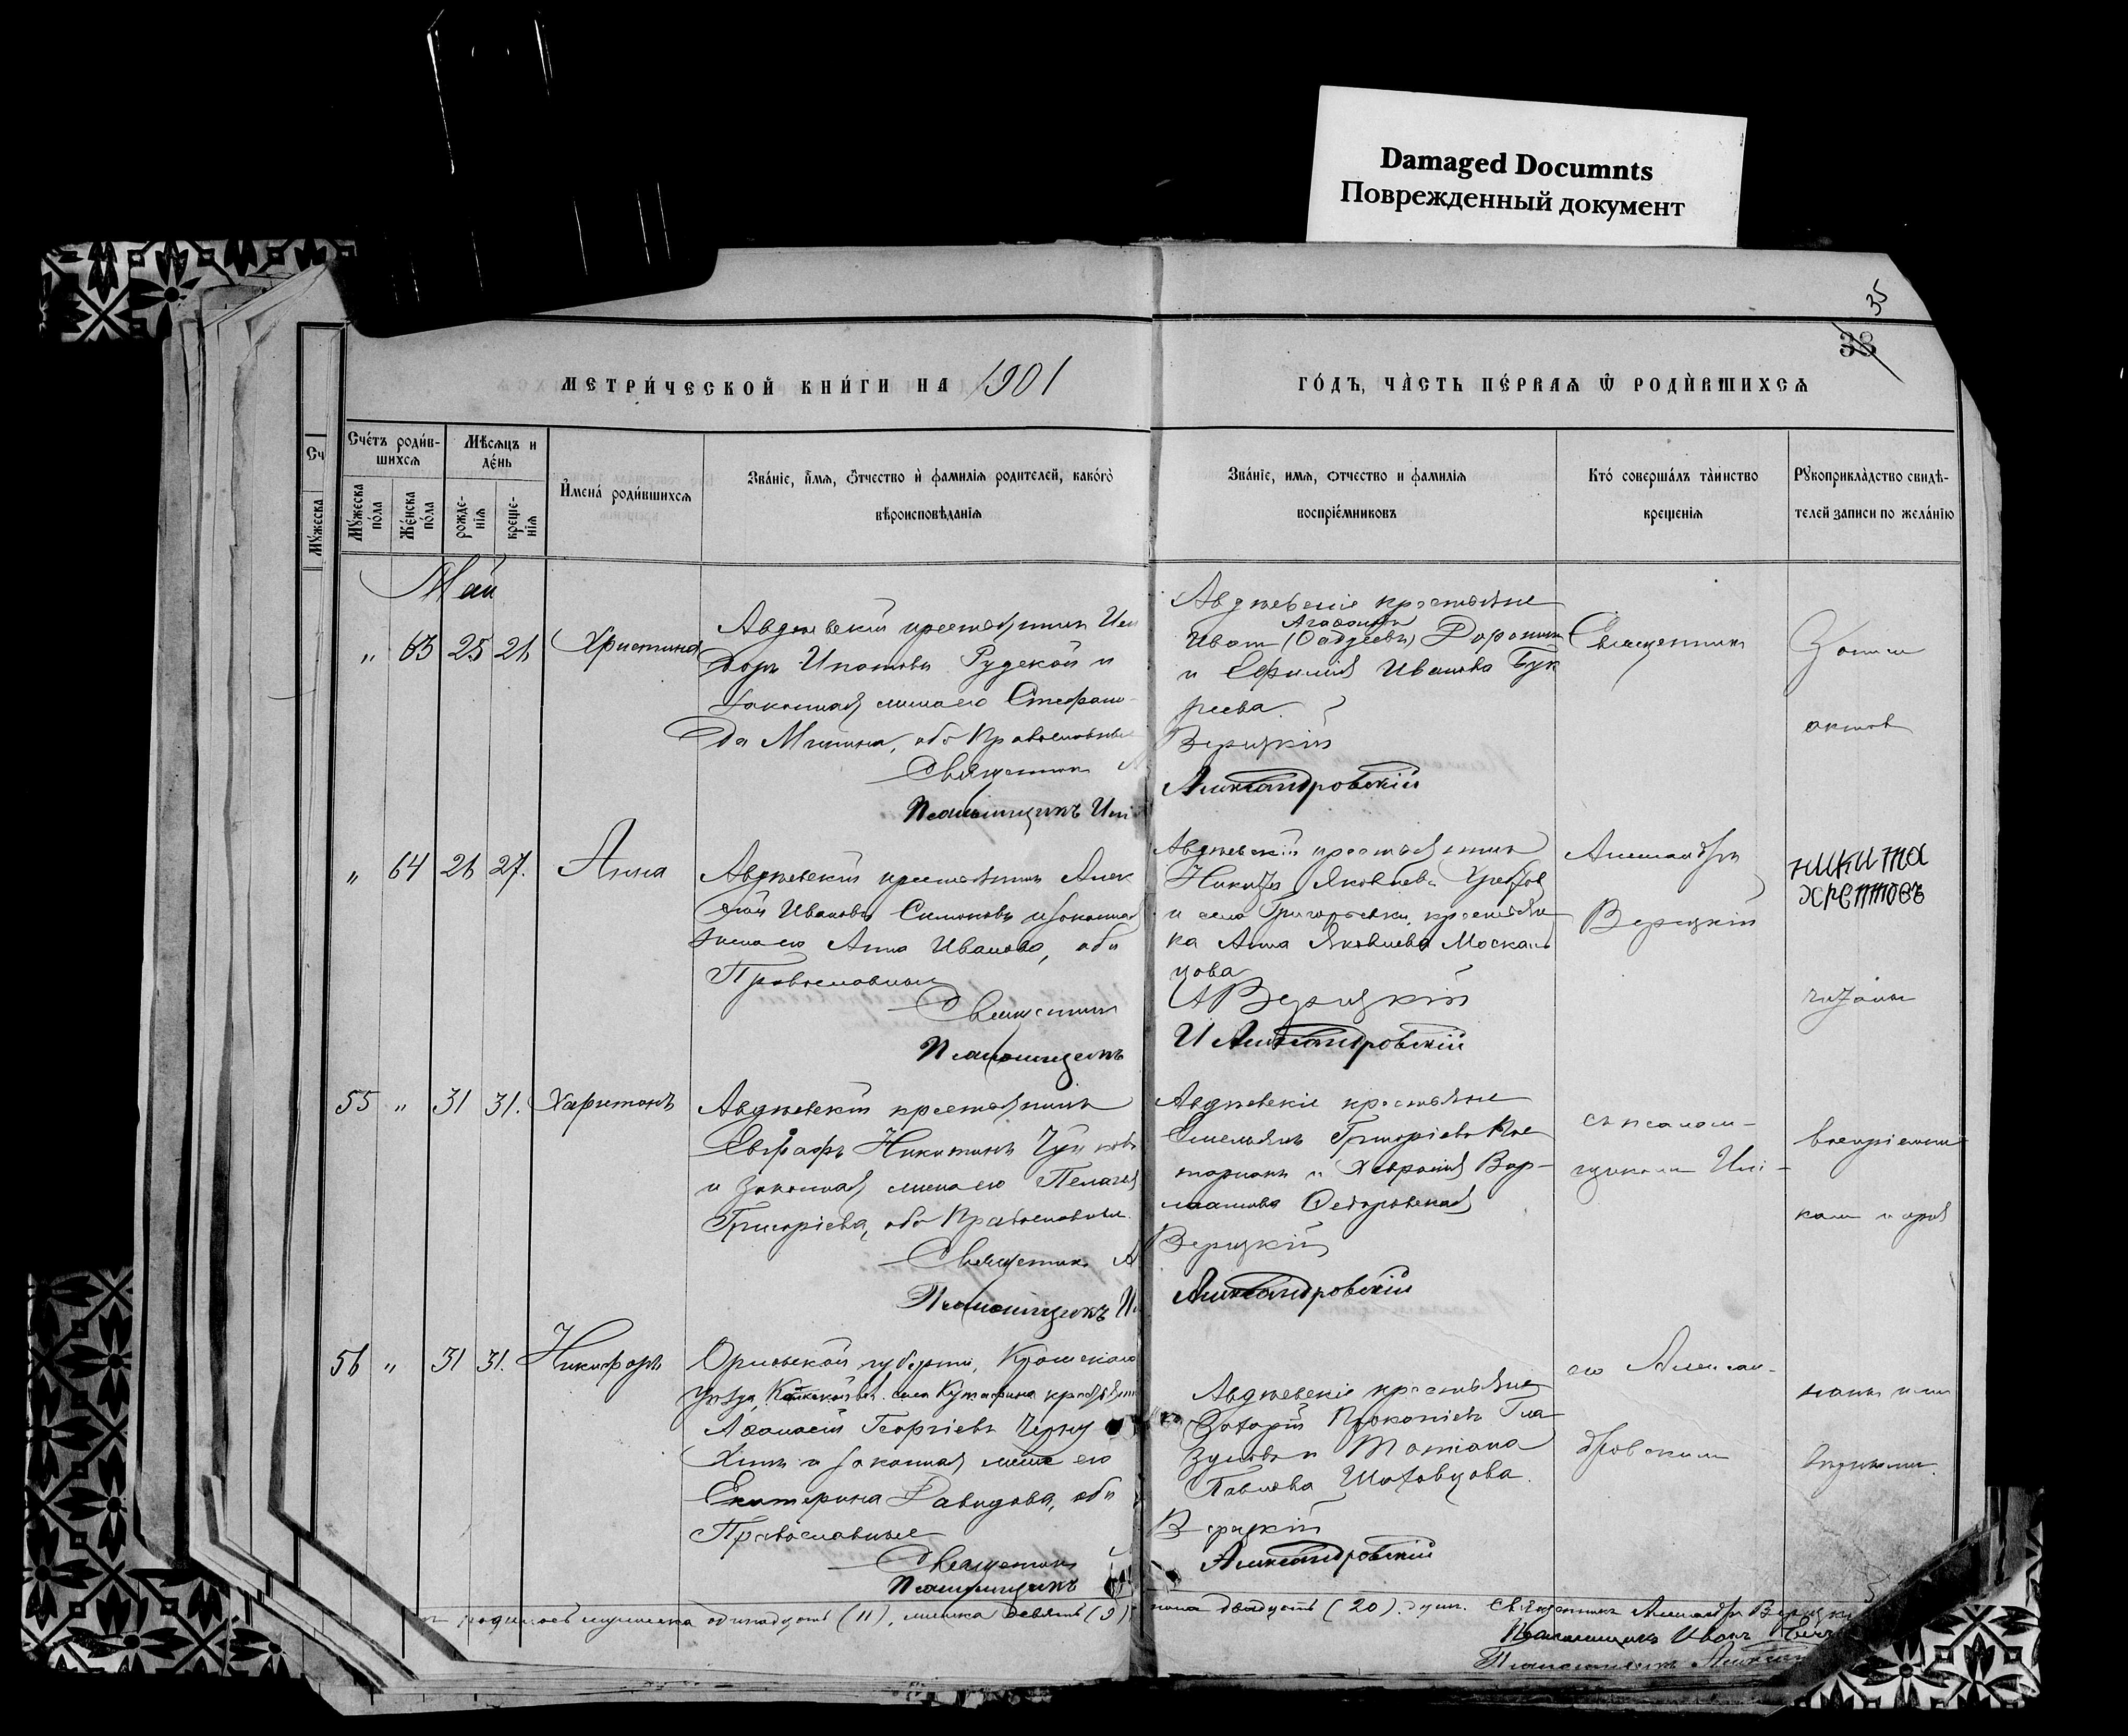 Damaged Documnts
Поврежденный документ
35
38
МЕТРИ́ЧЕСКОЙ КНИ́ГИ НА 1901
ГО́ДЪ, ЧА̀СТЬ ПЕ́РВАѦ Ѿ РОДЍВШИХСѦ
Сч
Мꙋ́жеска
Счéтъ роди́в-
шихсѧ
Мꙋ́жеска
по́ла
Же́нска
по́ла
Мѣсѧцъ и
де́нь
рожде-
нїѧ
креще-
нїѧ
И҆мена́ роди́вшихсѧ
Зва́нїе, и҆́мѧ, ѻ҆́тчество и҆ фамилїѧ родителей, како́гѡ
вѣроисповѣданїѧ
Зва́нїе, имѧ, ѻтчество и фамилїѧ
воспрїе́мниковъ
Кто́ соверша́лъ та̀инство
крещенїѧ
Рꙋкоприкла̀дство свидѣ-
телей записи по жела́нїю
Май
" 63 25 26 Христина
Авдѣевскій крестьянинъ Иси
доръ Ипатовъ Рудской и
законная жена его Стефани-
да Минина, оба Православные
Священникъ
Псаломщикъ
Авдѣевскіе крестьяне
Иванъ (Фадѣевъ) Доронинъ
и Ефимія Иванова Бук
реева
Верицкій
Александровскій
Священникъ
" 64 26 27. Анна
Авдѣевскій крестьянинъ Алек
сѣй Ивановъ Симоновъ и законная
жена его Анна Иванова, оба
Православные
Священникъ
Псаломщикъ
Авдѣевскій крестьянинъ
Никита Яковлевъ
и села Григорьевки, крестьян
ка Анна Яковлева Москаль
цова
А Верицкій
И Александровскій
Александръ
Верицкій
никита
хрептовъ
55 " 31 31. Харитонъ
Авдѣевскій крестьянинъ
Евграфъ Никитинъ
и законная жена его Пелагея
Григорьева, оба Православные
Священникъ А
Псаломщикъ
Авдѣевскіе крестьяне
Емельянъ Григорьевъ
и Хеврошія Вар-
лаамова Федоровская
Верицкій
Александровскій
съ псалом-
щикомъ Илі-
воспріемни
56 " 31 31. Никифоръ
Орловской губерніи, Кромскаго
уѣзда, села Кутафина
Аѳанасій Георгіевъ
и законная жена его
Екатерина Давидова, оба
Православные
Священникъ
Псаломщикъ
Авдѣевскіе крестьяне
Захарій Прокопіевъ Гла
зуновъ и Татіана
Павлова Шаховцова.
Верицкій
Александровскій
ею Алексан-
дровскимъ
родилось мужеска одинадцать (11), женска девять (9)
пола двадцать (20) душъ. Священникъ Александръ Верицкій
Псаломщикъ Иванъ
Псаломщикъ